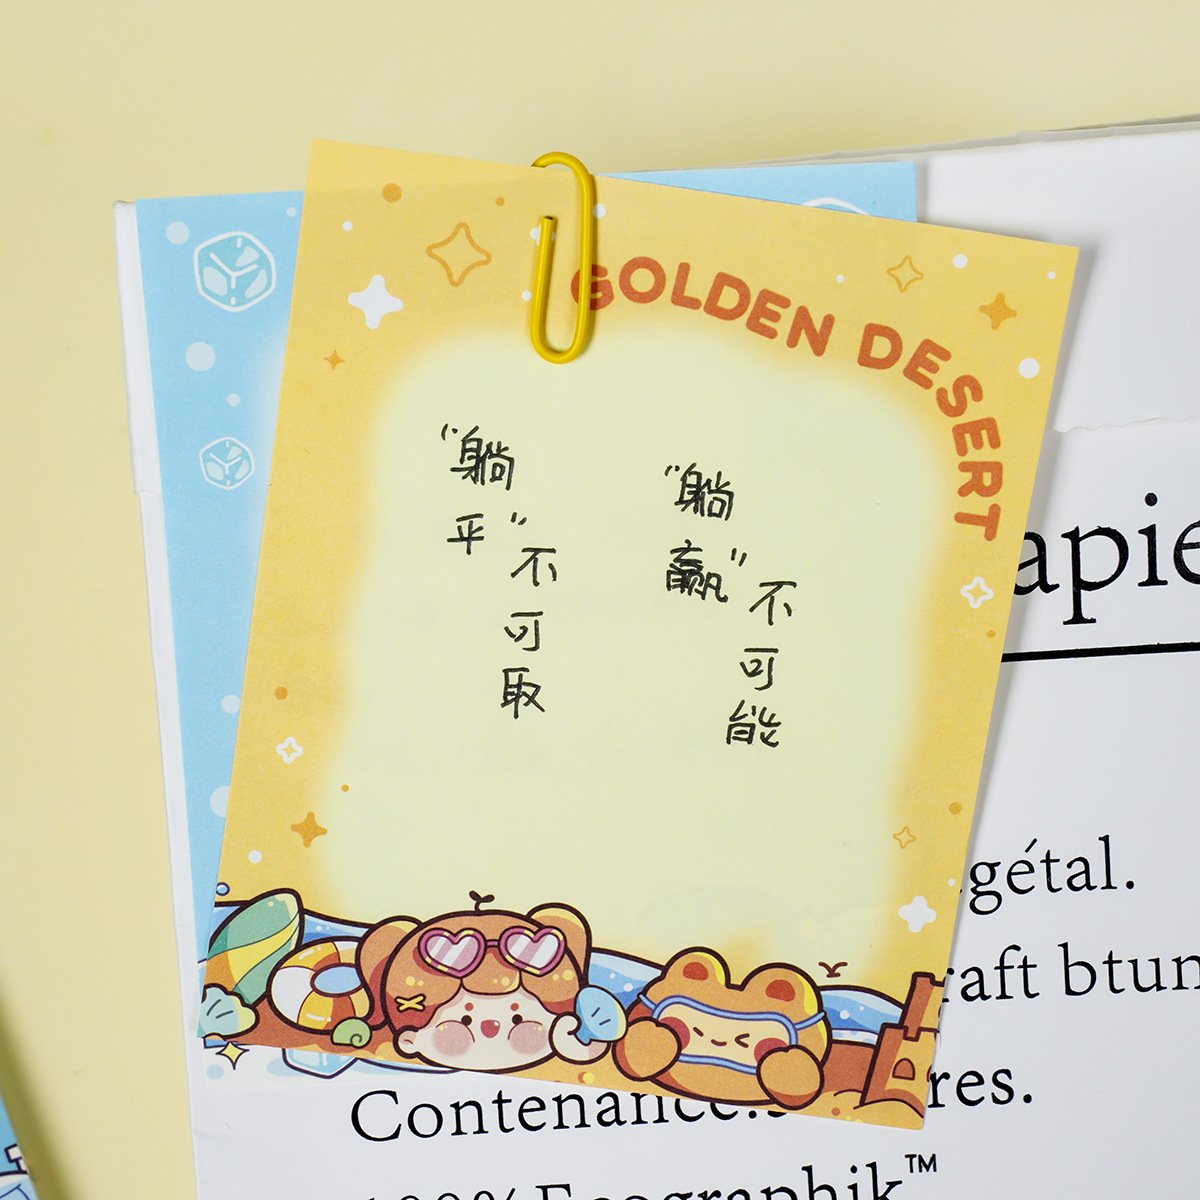 GOLDEN DESERT
“躺平”不可取
“躺赢”不可能
apie
gétal.
raft btun
Contenance.
res.
100% Ecographik™